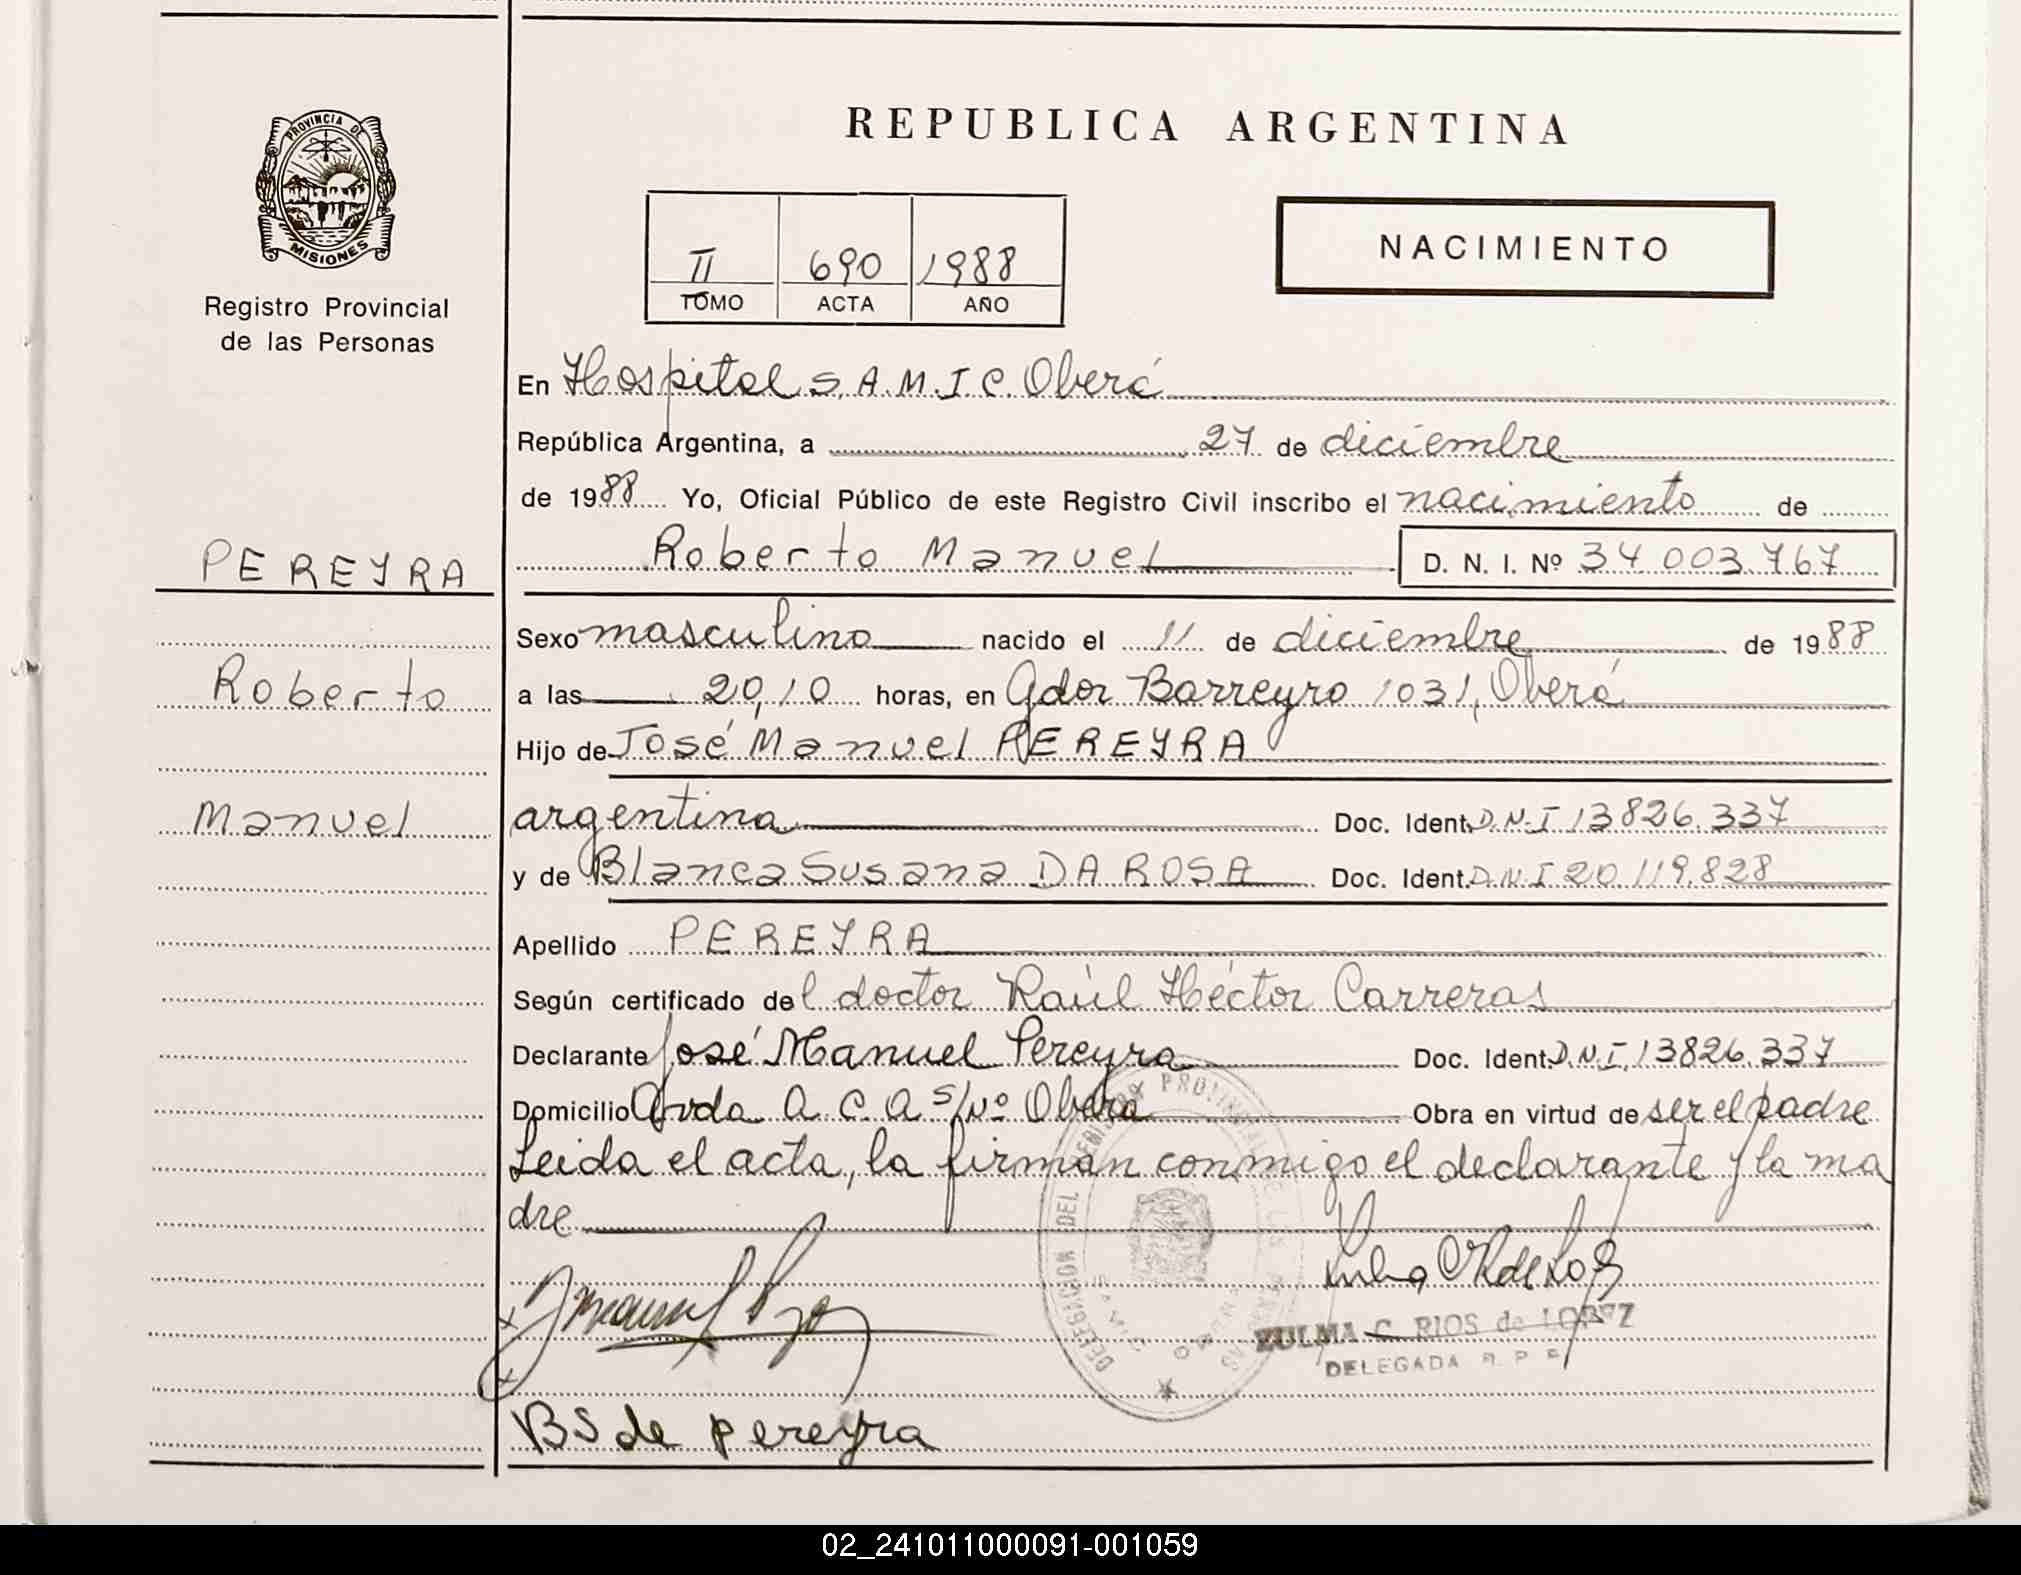 REPUBLICA ARGENTINA
PROVINCIA DE
MISIONES
Registro Provincial
de las Personas
II 690 1988
TOMO ACTA AÑO
NACIMIENTO
En Hospital S.A.M.I.C. Oberá
República Argentina, a 27 de diciembre
de 1988 Yo, Oficial Público de este Registro Civil inscribo el nacimiento de
PEREYRA
Roberto Manuel D. N. I. Nº 34 003.767
Sexo masculino nacido el 11 de diciembre de 1988
Roberto
a las 20,10 horas, en Gdor Barreyro 1031, Oberá
Hijo de José Manuel PEREYRA
Manuel
argentina Doc. Ident. D.N.I 13826.337
y de Blanca Susana DA ROSA Doc. Ident. D.N.I 20.119.828
Apellido PEREYRA
Según certificado del doctor Raúl Héctor Carreras
Declarante José Manuel Pereyra Doc. Ident. D.N.I. 13826.337
Domicilio Avda A.C.A s/Nº Oberá Obra en virtud de ser el padre
Leida el acta, la firman conmigo el declarante y la ma
dre
DELEGACION DEL REGISTRO PROVINCIAL DE LAS PERSONAS
ZULMA C. RIOS de LOPEZ
DELEGADA R. P. P.
BS de pereyra
02_241011000091-001059